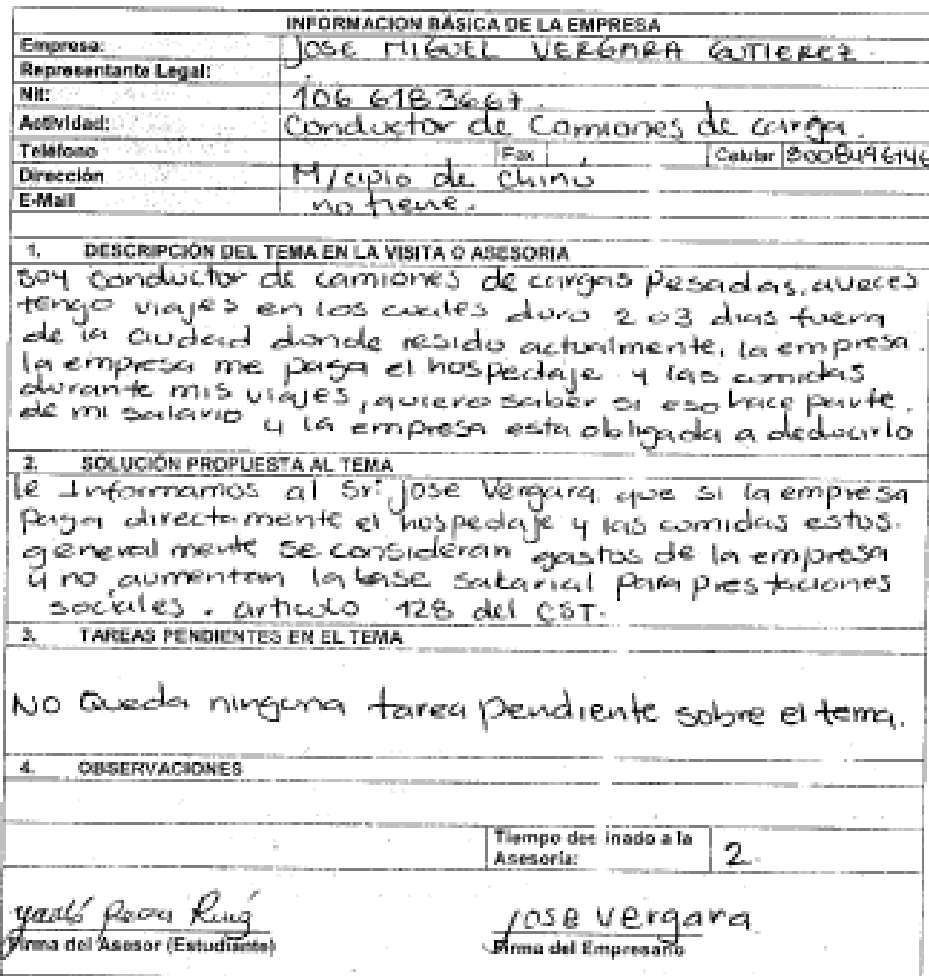 INFORMACION BÁSICA DE LA EMPRESA
Empresa: JOSE MIGUEL VERGARA GUTIEREZ.
Representante Legal:
Nit: 106 6183667.
Actividad: Conductor de Camiones de carga.
Teléfono Fax Celular 3008496146
Dirección M/cipio de Chinú
E-Mail no tiene.
1. DESCRIPCIÓN DEL TEMA EN LA VISITA O ASESORIA
soy conductor de camiones de cargas Pesadas, aveces
tengo viajes en los cuales duro 2 o 3 dias fuera
de la ciudad donde resido actualmente, la empresa.
la empresa me paga el hospedaje y las comidas
durante mis viajes, quiero saber si eso hace parte.
de mi salario y la empresa esta obligada a deducirlo
2. SOLUCIÓN PROPUESTA AL TEMA
le Informamos al Sr. Jose Vergara que si la empresa
Paga directamente el hospedaje y las comidas estos.
generalmente se consideran gastos de la empresa
y no aumentan la base salarial para prestaciones
sociales. articulo 128 del CST.
3. TAREAS PENDIENTES EN EL TEMA
NO Queda ninguna tarea pendiente sobre el tema.
4. OBSERVACIONES
Tiempo des inado a la
Asesoria: 2
Ruiz
jose vergara
Firma del Asesor (Estudiante) Firma del Empresario